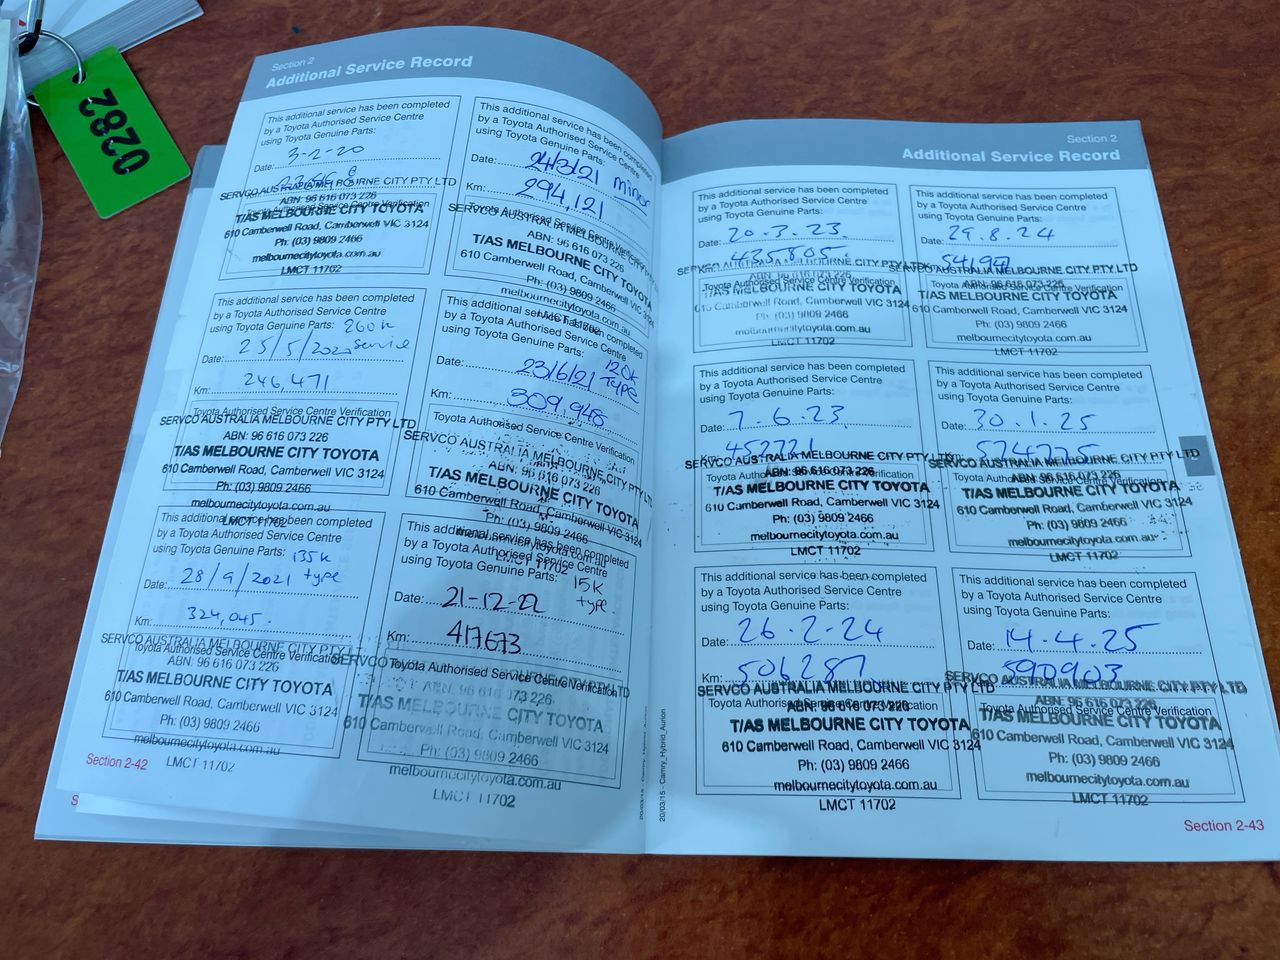 0282
Section 2
Additional Service Record
This additional service has been completed
by a Toyota Authorised Service Centre
using Toyota Genuine Parts:
Date: 3-2-20
SERVCO AUSTRALIA MELBOURNE CITY PTY LTD
ABN: 96 616 073 226
Toyota Authorised Service Centre Verification
T/AS MELBOURNE CITY TOYOTA
610 Camberwell Road, Camberwell VIC 3124
Ph: (03) 9809 2466
melbournecitytoyota.com.au
LMCT 11702
This additional service has been completed
by a Toyota Authorised Service Centre
using Toyota Genuine Parts:
Date: 24/3/21 minor
Km: 294,121
Toyota Authorised Service Centre Verification
SERVCO AUSTRALIA MELBOURNE
ABN: 96 616 073 226
T/AS MELBOURNE CITY TOYOTA
610 Camberwell Road, Camberwell VIC
Ph: (03) 9809 2466
melbournecitytoyota.com.au
LMCT 11702
This additional service has been completed
by a Toyota Authorised Service Centre
using Toyota Genuine Parts: 260k
Date: 25/5/2020 service
Km: 246,471
Toyota Authorised Service Centre Verification
SERVCO AUSTRALIA MELBOURNE CITY PTY LTD
ABN: 96 616 073 226
T/AS MELBOURNE CITY TOYOTA
610 Camberwell Road, Camberwell VIC 3124
Ph: (03) 9809 2466
melbournecitytoyota.com.au
LMCT 11702
This additional service has been completed
by a Toyota Authorised Service Centre
using Toyota Genuine Parts: 120k
Date: 23/6/21 type
Km: 309,948
Toyota Authorised Service Centre Verification
SERVCO AUSTRALIA MELBOURNE CITY PTY LTD
ABN: 96 616 073 226
T/AS MELBOURNE CITY TOYOTA
610 Camberwell Road, Camberwell VIC 3124
Ph: (03) 9809 2466
melbournecitytoyota.com.au
LMCT 11702
This additional service has been completed
by a Toyota Authorised Service Centre
using Toyota Genuine Parts: 135k
Date: 28/9/2021 type
Km: 324,045.
SERVCO AUSTRALIA MELBOURNE CITY PTY LTD
Toyota Authorised Service Centre Verification
ABN: 96 616 073 226
T/AS MELBOURNE CITY TOYOTA
610 Camberwell Road, Camberwell VIC 3124
Ph: (03) 9809 2466
melbournecitytoyota.com.au
LMCT 11702
This additional service has been completed
by a Toyota Authorised Service Centre
using Toyota Genuine Parts: 15k
Date: 21-12-22 type
Km: 417673
Toyota Authorised Service Centre Verification
SERVCO AUSTRALIA MELBOURNE CITY PTY LTD
ABN: 96 616 073 226
T/AS MELBOURNE CITY TOYOTA
610 Camberwell Road, Camberwell VIC 3124
Ph: (03) 9809 2466
melbournecitytoyota.com.au
LMCT 11702
Section 2-42
20/03/15 - Camry_Hybrid_Aurion
Section 2
Additional Service Record
This additional service has been completed
by a Toyota Authorised Service Centre
using Toyota Genuine Parts:
Date: 20.3.23.
Km: 435805.
SERVCO AUSTRALIA MELBOURNE CITY PTY LTD
ABN: 96 616 073 226
Toyota Authorised Service Centre Verification
T/AS MELBOURNE CITY TOYOTA
610 Camberwell Road, Camberwell VIC 3124
Ph: (03) 9809 2466
melbournecitytoyota.com.au
LMCT 11702
This additional service has been completed
by a Toyota Authorised Service Centre
using Toyota Genuine Parts:
Date: 29.8.24
SERVCO AUSTRALIA MELBOURNE CITY PTY LTD
ABN: 96 616 073 226
Toyota Authorised Service Centre Verification
T/AS MELBOURNE CITY TOYOTA
610 Camberwell Road, Camberwell VIC 3124
Ph: (03) 9809 2466
melbournecitytoyota.com.au
LMCT 11702
This additional service has been completed
by a Toyota Authorised Service Centre
using Toyota Genuine Parts:
Date: 7.6.23.
Km: 452721
SERVCO AUSTRALIA MELBOURNE CITY PTY LTD
ABN: 96 616 073 226
Toyota Authorised Service Centre Verification
T/AS MELBOURNE CITY TOYOTA
610 Camberwell Road, Camberwell VIC 3124
Ph: (03) 9809 2466
melbournecitytoyota.com.au
LMCT 11702
This additional service has been completed
by a Toyota Authorised Service Centre
using Toyota Genuine Parts:
Date: 30.1.25
Km: 574775
SERVCO AUSTRALIA MELBOURNE CITY PTY LTD
ABN: 96 616 073 226
Toyota Authorised Service Centre Verification
T/AS MELBOURNE CITY TOYOTA
610 Camberwell Road, Camberwell VIC 3124
Ph: (03) 9809 2466
melbournecitytoyota.com.au
LMCT 11702
This additional service has been completed
by a Toyota Authorised Service Centre
using Toyota Genuine Parts:
Date: 26.2.24
Km: 506287
SERVCO AUSTRALIA MELBOURNE CITY PTY LTD
ABN: 96 616 073 226
Toyota Authorised Service Centre Verification
T/AS MELBOURNE CITY TOYOTA
610 Camberwell Road, Camberwell VIC 3124
Ph: (03) 9809 2466
melbournecitytoyota.com.au
LMCT 11702
This additional service has been completed
by a Toyota Authorised Service Centre
using Toyota Genuine Parts:
Date: 14.4.25
Km: 590903
SERVCO AUSTRALIA MELBOURNE CITY PTY LTD
ABN: 96 616 073 226
Toyota Authorised Service Centre Verification
T/AS MELBOURNE CITY TOYOTA
610 Camberwell Road, Camberwell VIC 3124
Ph: (03) 9809 2466
melbournecitytoyota.com.au
LMCT 11702
20/03/15 - Camry_Hybrid_Aurion
Section 2-43